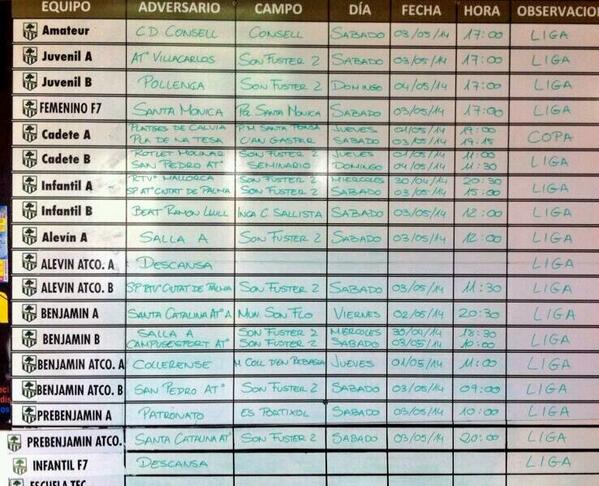 EQUIPO ADVERSARIO CAMPO DÍA FECHA HORA OBSERVACION
Amateur C.D. CONSELL CONSELL SABADO 03/05/14 17:00 LIGA
Juvenil A ATº VILLACARLOS SON FUSTER 2 SABADO 03/05/14 17:00 LIGA
Juvenil B POLLENÇA SON FUSTER 2 DOMINGO 04/05/14 17:00 LIGA
FEMENINO F7 SANTA MONICA POL SANTA MONICA SABADO 03/05/14 17:00 LIGA
Cadete A PLATGES DE CALVIA P.M SANTA PONSA JUEVES 01/05/14 19:00 COPA
PLA DE NA TESA CAN GASPAR SABADO 03/05/14 19:15
Cadete B ROTLET MOLINAR SON FUSTER 2 JUEVES 01/05/14 11:00 LIGA
SAN PEDRO ATº SEMINARIO DOMINGO 04/05/14 11:30
Infantil A RTVº MALLORCA SON FUSTER 2 MIERCOLES 30/04/14 20:30 LIGA
SP ATº CIUTAT DE PALMA SON FUSTER 2 SABADO 03/05/14 15:00
Infantil B BEAT RAMON LLULL INCA C SALLISTA SABADO 03/05/14 12:00 LIGA
Alevín A SALLA A SON FUSTER 2 SABADO 03/05/14 12:00 LIGA
ALEVIN ATCO. A DESCANSA LIGA
ALEVIN ATCO. B SP RTVº CIUTAT DE PALMA SON FUSTER 2 SABADO 03/05/14 11:30 LIGA
BENJAMIN A SANTA CATALINA ATº A MUN. SON FLO VIERNES 02/05/14 20:30 LIGA
BENJAMIN B SALLA A SON FUSTER 2 MIERCOLES 30/04/14 18:30 LIGA
CAMPUSESPORT ATº SON FUSTER 2 SABADO 03/05/14 10:00
BENJAMIN ATCO. A COLLERENSE M COLL D'EN RABASA JUEVES 01/05/14 11:00 LIGA
BENJAMIN ATCO. B SAN PEDRO ATº SON FUSTER 2 SABADO 03/05/14 09:00 LIGA
PREBENJAMIN A PATRONATO ES PORTIXOL SABADO 03/05/14 10:00 LIGA
PREBENJAMIN ATCO. SANTA CATALINA ATº SON FUSTER 2 SABADO 03/05/14 20:00 LIGA
INFANTIL F7 DESCANSA LIGA
ESCUELA TEC